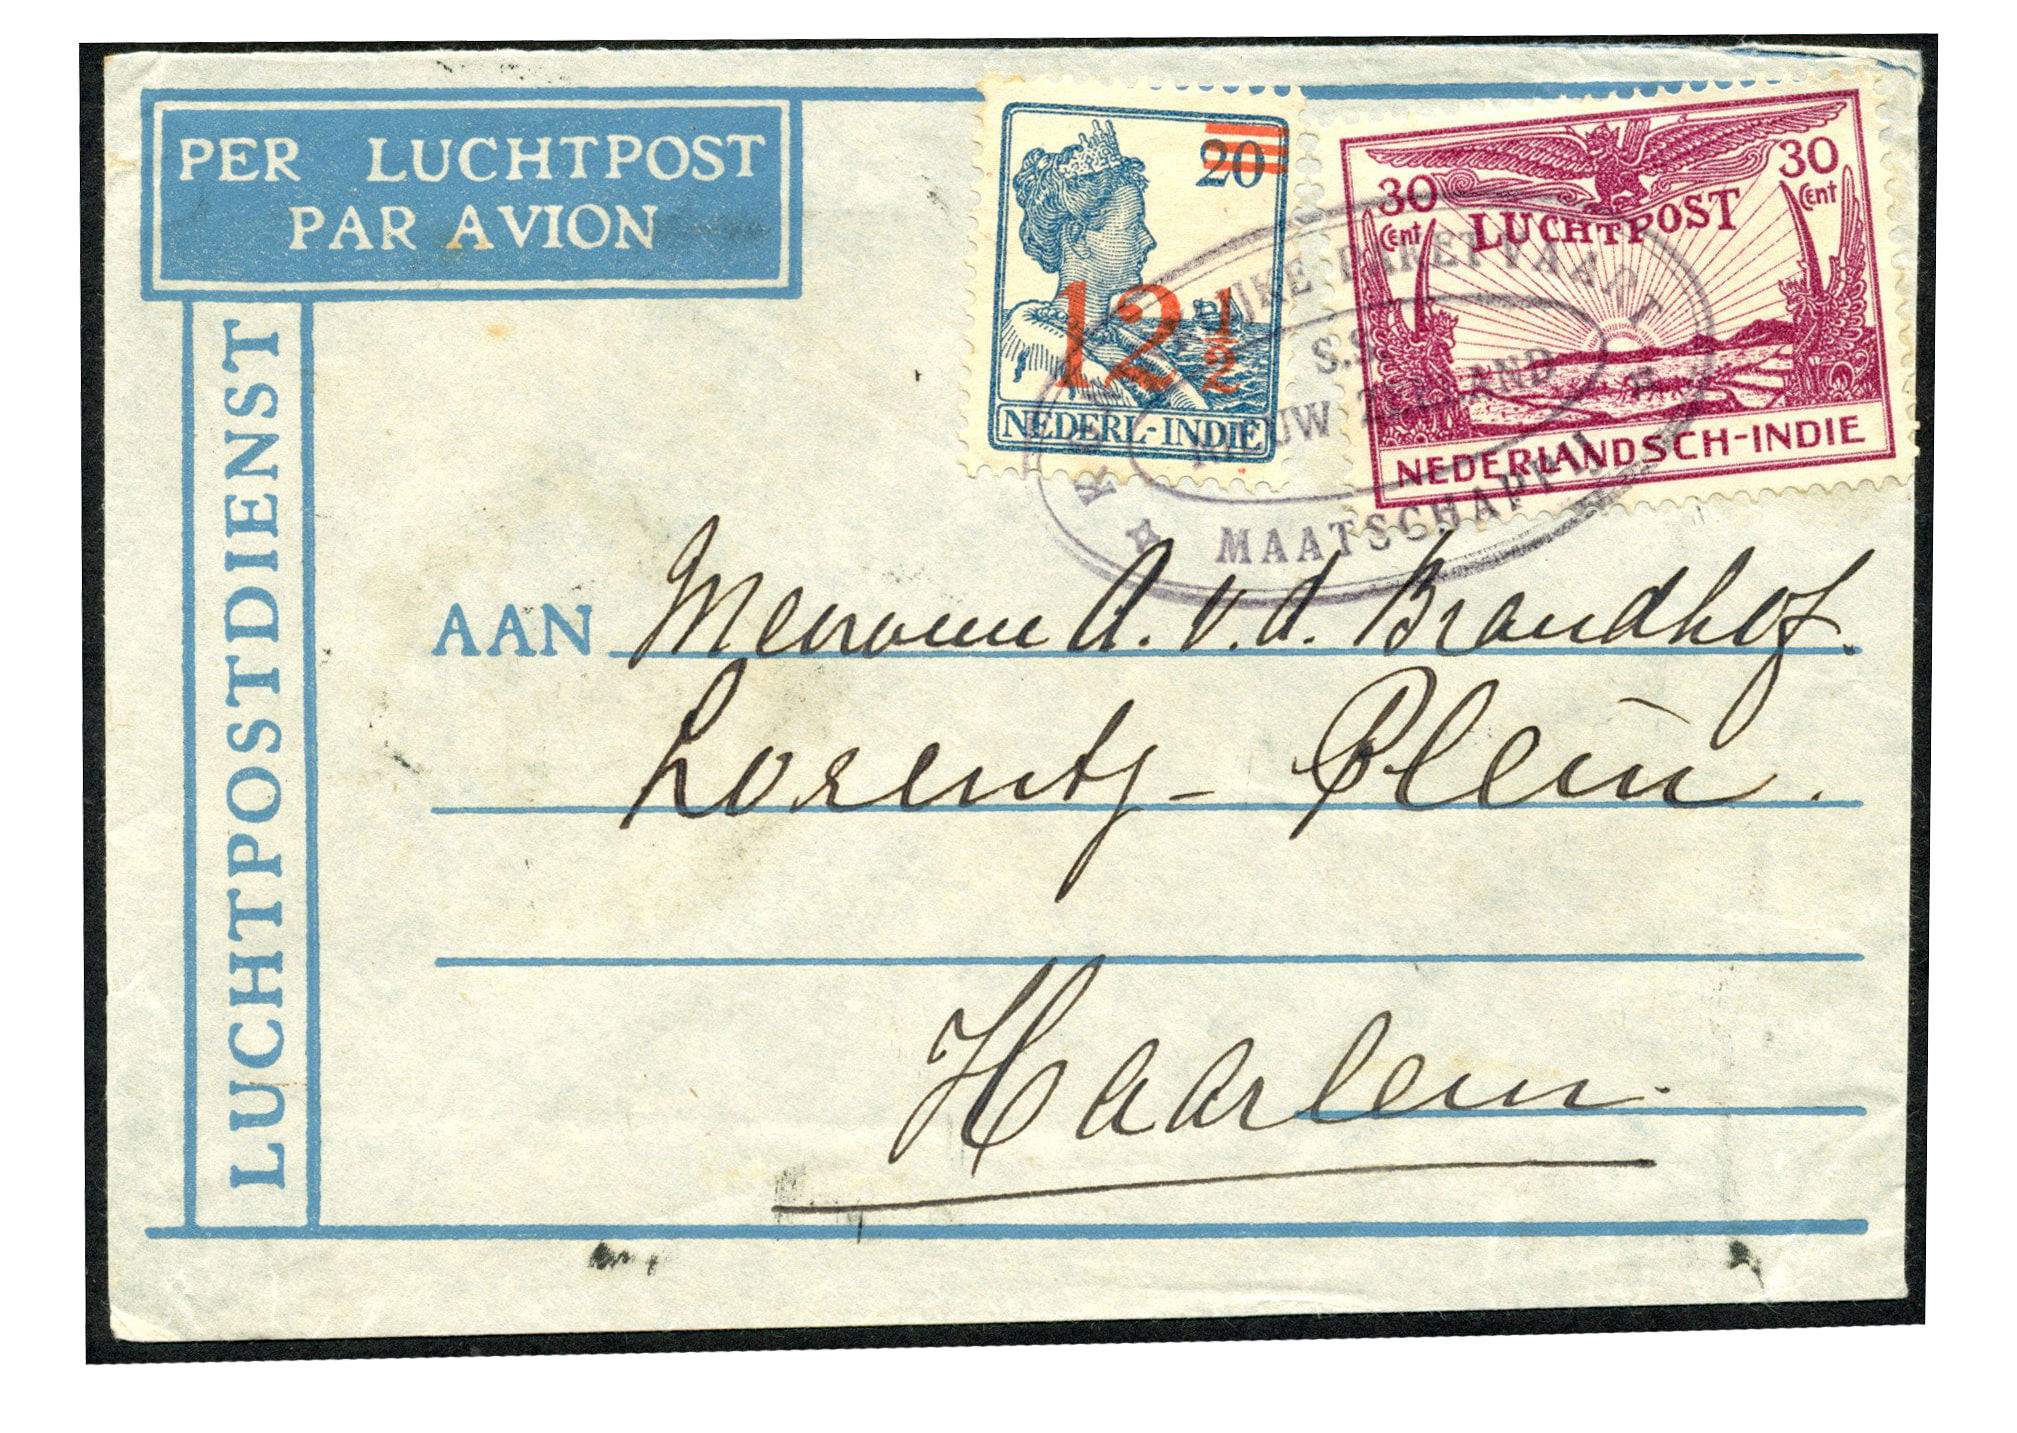 PER LUCHTPOST
PAR AVION
LUCHTPOSTDIENST
20
12 1/2
NEDERL-INDIE
30 Cent
30 Cent
LUCHTPOST
NEDERLANDSCH-INDIE
PAKETVAART
S.S.
NIEUW ZEELAND
MAATSCHAPPIJ
AAN Mevrouw A. v. d. Brandhof.
Lorentz-Plein.
Haarlem.